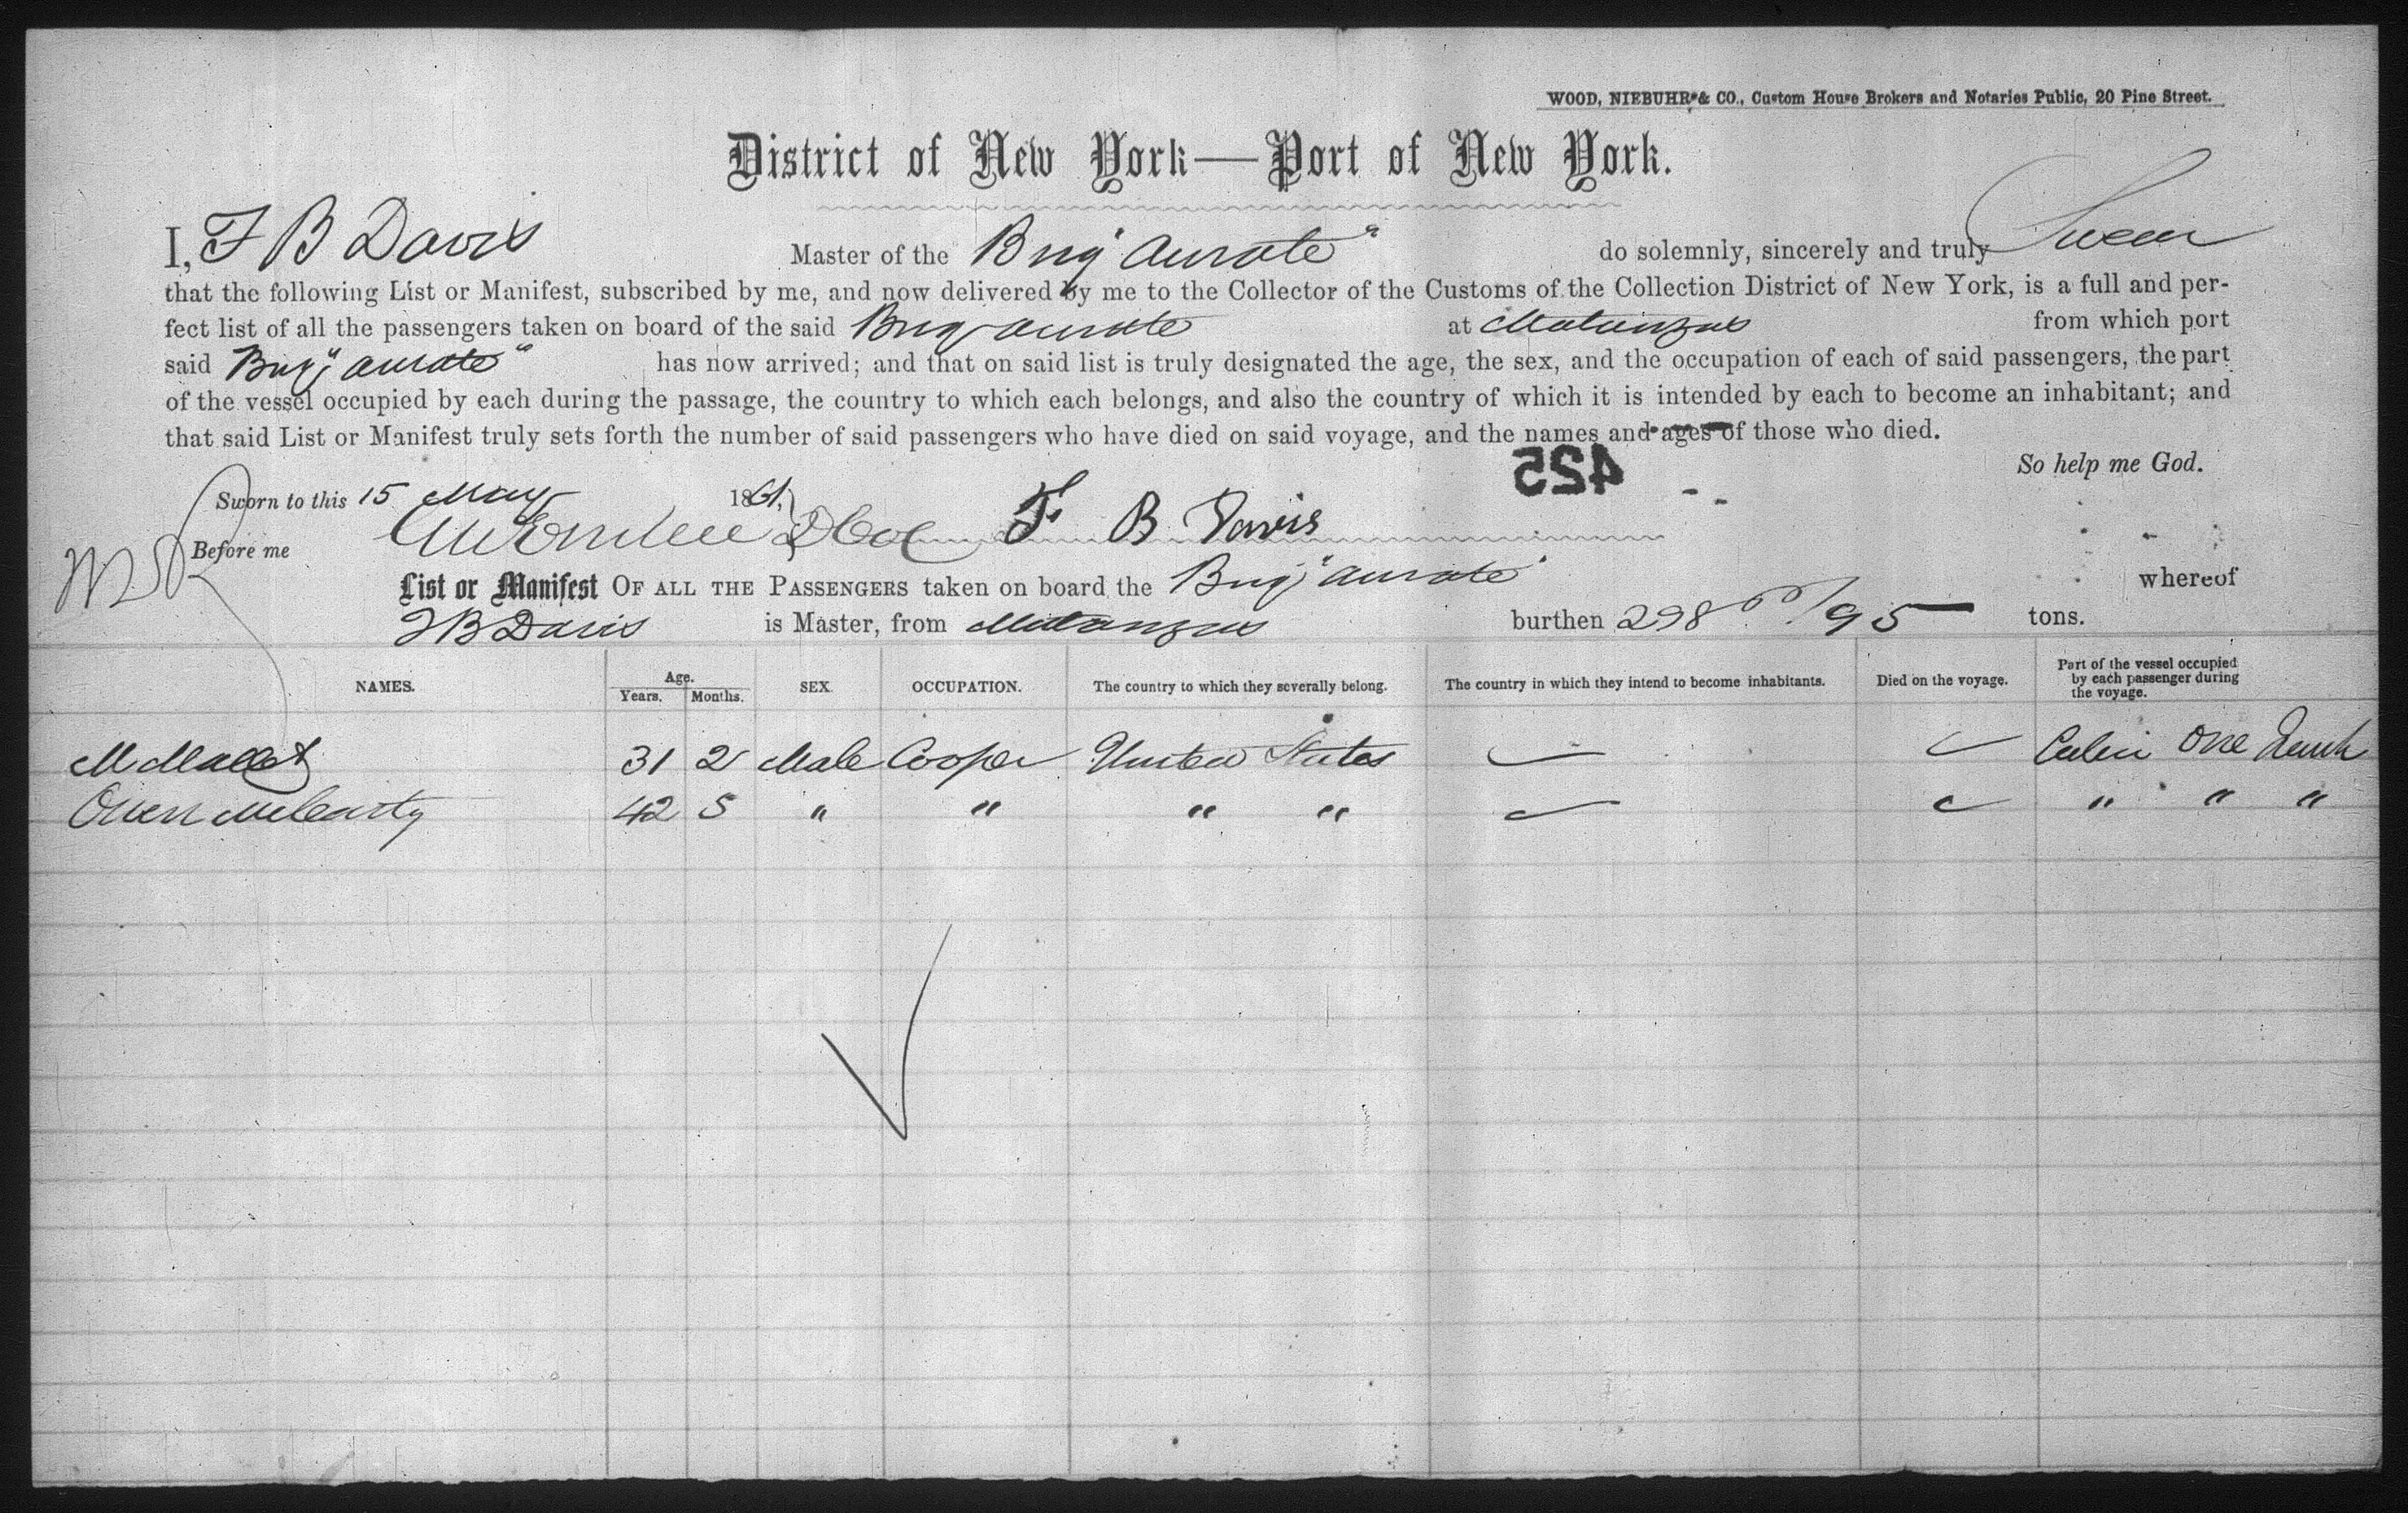 WOOD, NIEBUHR & CO., Custom House Brokers and Notaries Public, 20 Pine Street.
District of New York—Port of New York.
I, F B Davis Master of the Brig "Aurate" do solemnly, sincerely and truly Swear
that the following List or Manifest, subscribed by me, and now delivered by me to the Collector of the Customs of the Collection District of New York, is a full and per-
fect list of all the passengers taken on board of the said Brig Aurate at Matanzas from which port
said Brig "Aurate" has now arrived; and that on said list is truly designated the age, the sex, and the occupation of each of said passengers, the part
of the vessel occupied by each during the passage, the country to which each belongs, and also the country of which it is intended by each to become an inhabitant; and
that said List or Manifest truly sets forth the number of said passengers who have died on said voyage, and the names and ages of those who died.
So help me God.
425
Sworn to this 15 May 1861
Before me F B Davis
List or Manifest OF ALL THE PASSENGERS taken on board the Brig "Aurate" whereof
F B Davis is Master, from Matanzas burthen 298 /95 tons.
NAMES. Age. Years. Months. SEX. OCCUPATION. The country to which they severally belong. The country in which they intend to become inhabitants. Died on the voyage. Part of the vessel occupied by each passenger during the voyage.
M Mallet 31 2 Male Cooper United States Cabin One Trunk
Owen McCarty 42 5 " " " " " " "